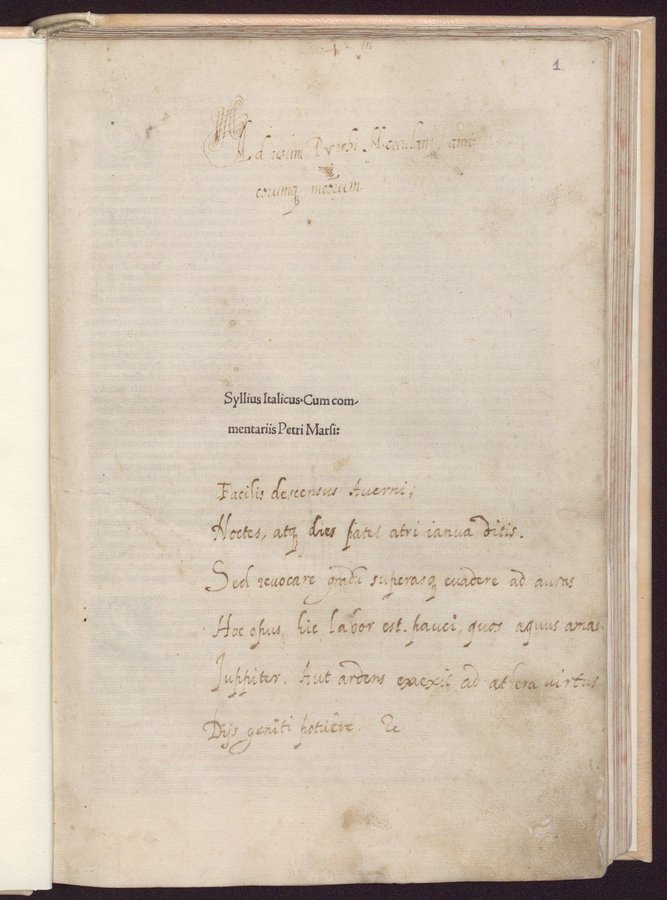 1
Ad usum Pyrrhi ami-
corumq meorum
Syllius Italicus. Cum com-
mentariis Petri Marsi:
Facilis descensus Averni;
Noctes, atq dies patet atri ianua ditis.
Sed revocare gradū, superasq evadere ad auras
Hoc opus, hic labor est. pauci, quos aquus amav
Juppiter. Aut ardens evexit ad athera virtus
Dijs geniti potuêre. &